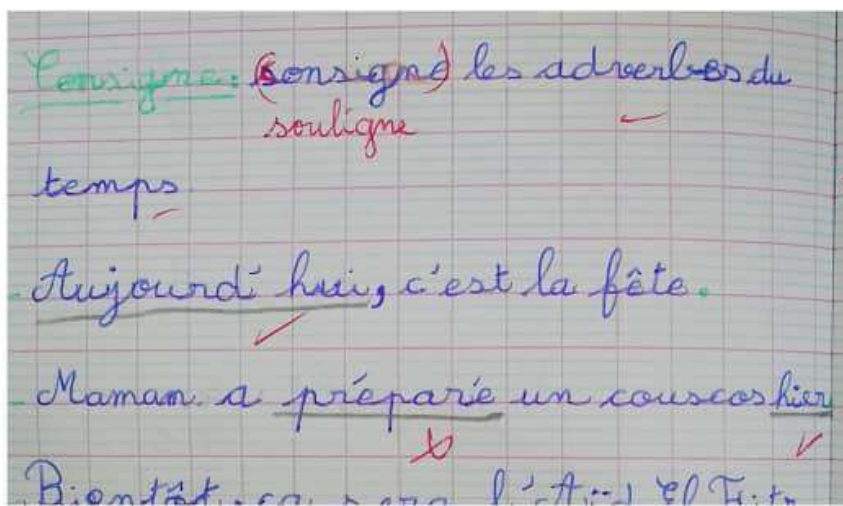 Consigne: (consigne) les adverbes du
souligne
temps
Aujourd'hui, c'est la fête.
Maman a préparé un couscos hier
Bientôt, ça sera l'Aïd El Fitr